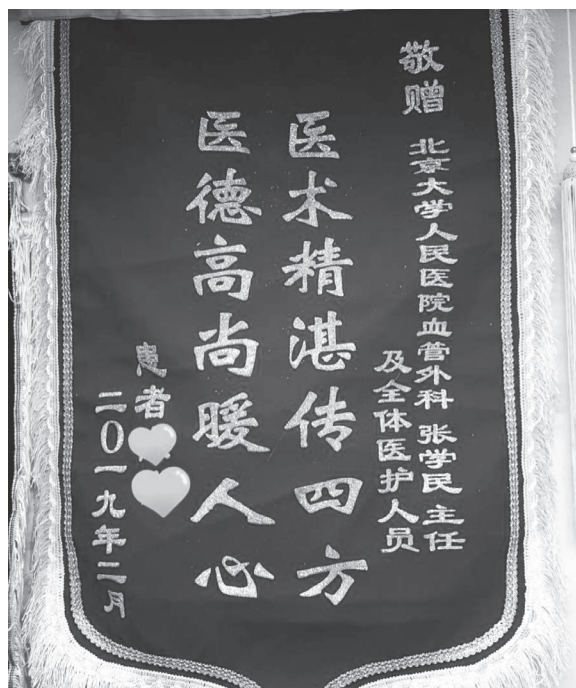 敬赠 北京大学人民医院血管外科 张学民 主任
及全体医护人员
医术精湛传四方
医德高尚暖人心
患者
二0一九年二月